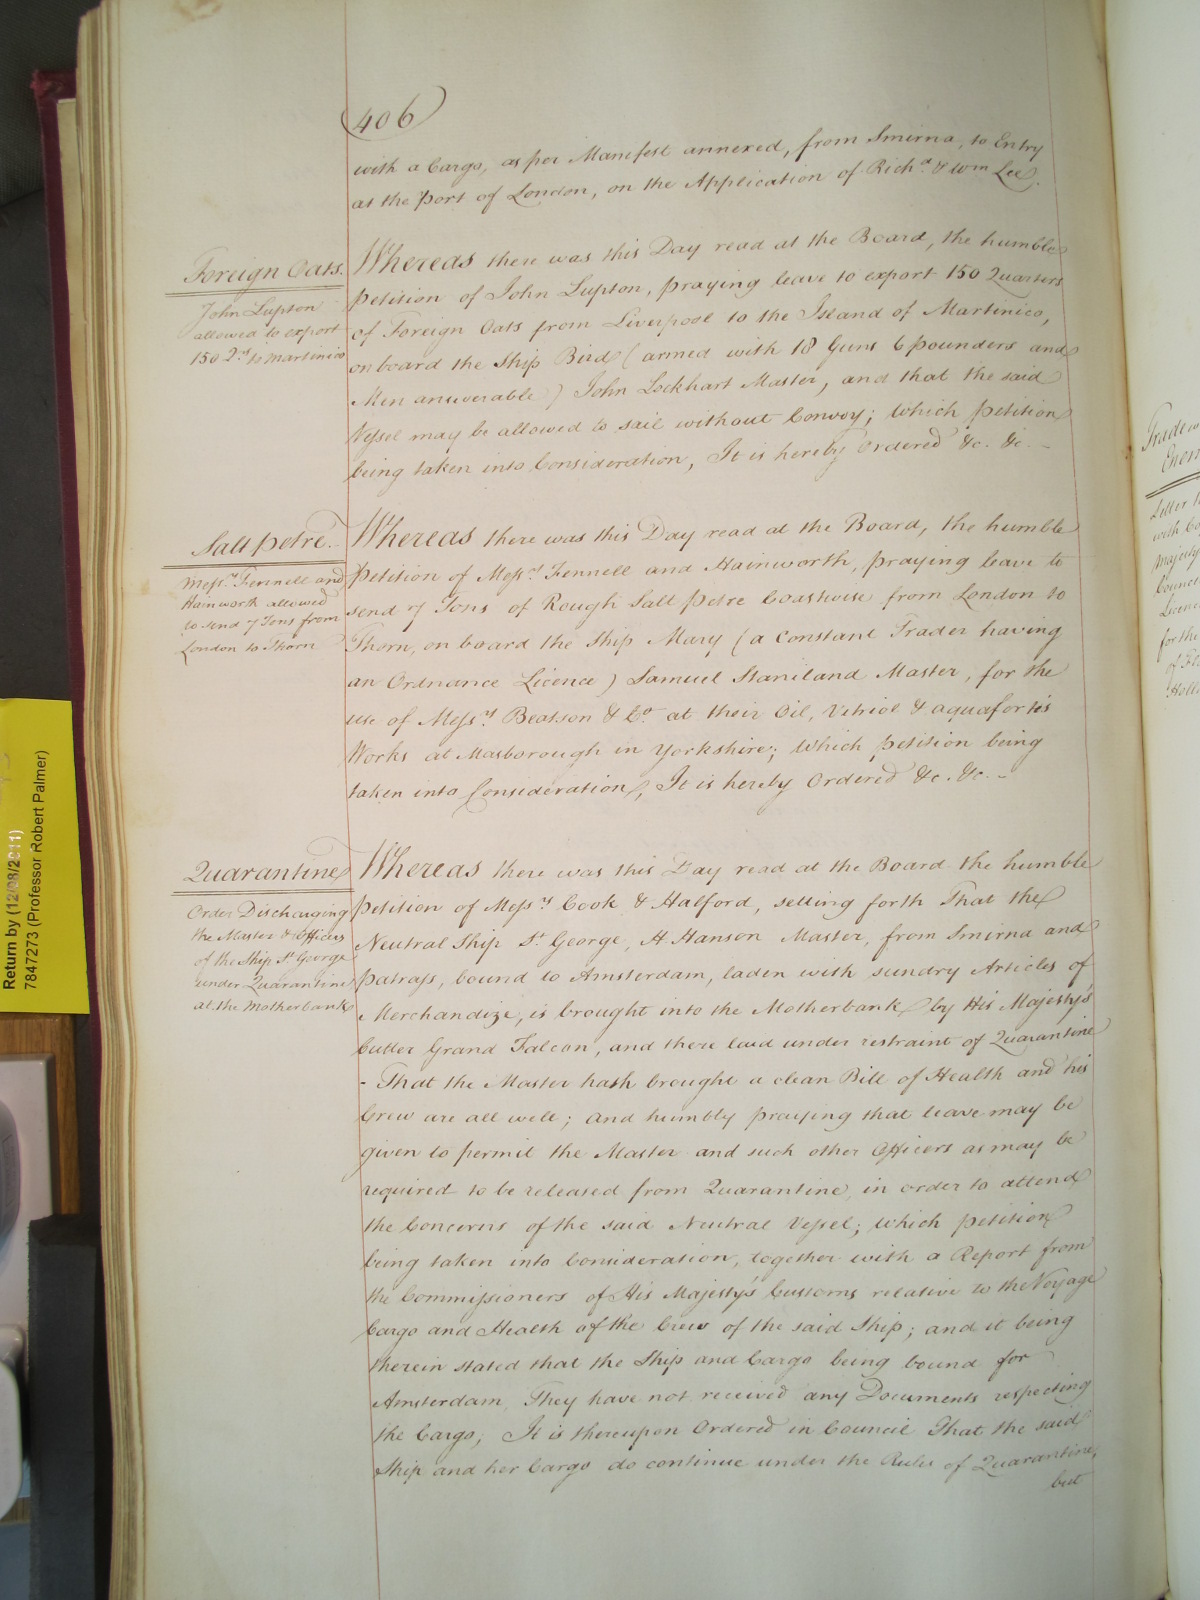 406
with a Cargo, as per Manifest annexed, from Smirna, to Entry
at the Port of London, on the Application of Richd. & Wm Lee.
Foreign Oats.
John Lupton
allowed to export
150 Qrs to Martinico
Whereas there was this Day read at the Board, the humble
Petition of John Lupton, praying leave to export 150 Quarters
of Foreign Oats from Liverpool to the Island of Martinico,
on board the Ship Bird (armed with 18 Guns 6 pounders and
Men answerable) John Lockhart Master, and that the said
Vessel may be allowed to sail without Convoy; Which Petition
being taken into Consideration, It is hereby Ordered &c. &c.
Salt Petre.
Messrs. Fennell and
Hainworth allowed
to send 7 Tons from
London to Thorn
Whereas there was this Day read at the Board, the humble
Petition of Messrs. Fennell and Hainworth, praying leave to
send 7 Tons of Rough Salt Petre Coastwise from London to
Thorn, on board the Ship Mary (a Constant Trader having
an Ordnance Licence) Samuel Staniland Master, for the
use of Messrs. Beatson & Co. at their Oil, Vitriol & aquafortis
Works at Masborough in Yorkshire; Which Petition being
taken into Consideration, It is hereby Ordered &c. &c. -
Quarantine
Order Discharging
the Master & Officers
of the Ship St George
under Quarantine
at the Motherbank
Whereas there was this Day read at the Board the humble
Petition of Messrs. Cook & Halford, setting forth That the
Neutral Ship St. George, H. Hanson Master, from Smirna and
Patrass, bound to Amsterdam, laden with sundry Articles of
Merchandize, is brought into the Motherbank by His Majesty's
Cutter Grand Falcon, and there laid under restraint of Quarantine
- That the Master hath brought a clean Bill of Health and his
Crew are all well; and humbly praying that leave may be
given to permit the Master and such other Officers as may be
required to be released from Quarantine, in order to attend
the Concerns of the said Neutral Vessel; which Petition
being taken into Consideration, together with a Report from
the Commissioners of His Majesty's Customs relative to the Voyage
Cargo and Health of the Crew of the said Ship; and it being
therein stated that the Ship and Cargo being bound for
Amsterdam, They have not received any Documents respecting
the Cargo; It is thereupon Ordered in Council That the said
Ship and her Cargo do continue under the Rules of Quarantine,
but
Return by (12/08/2011)
7847273 (Professor Robert Palmer)
Letter
with
Majesty
Council
Licence
for the
of